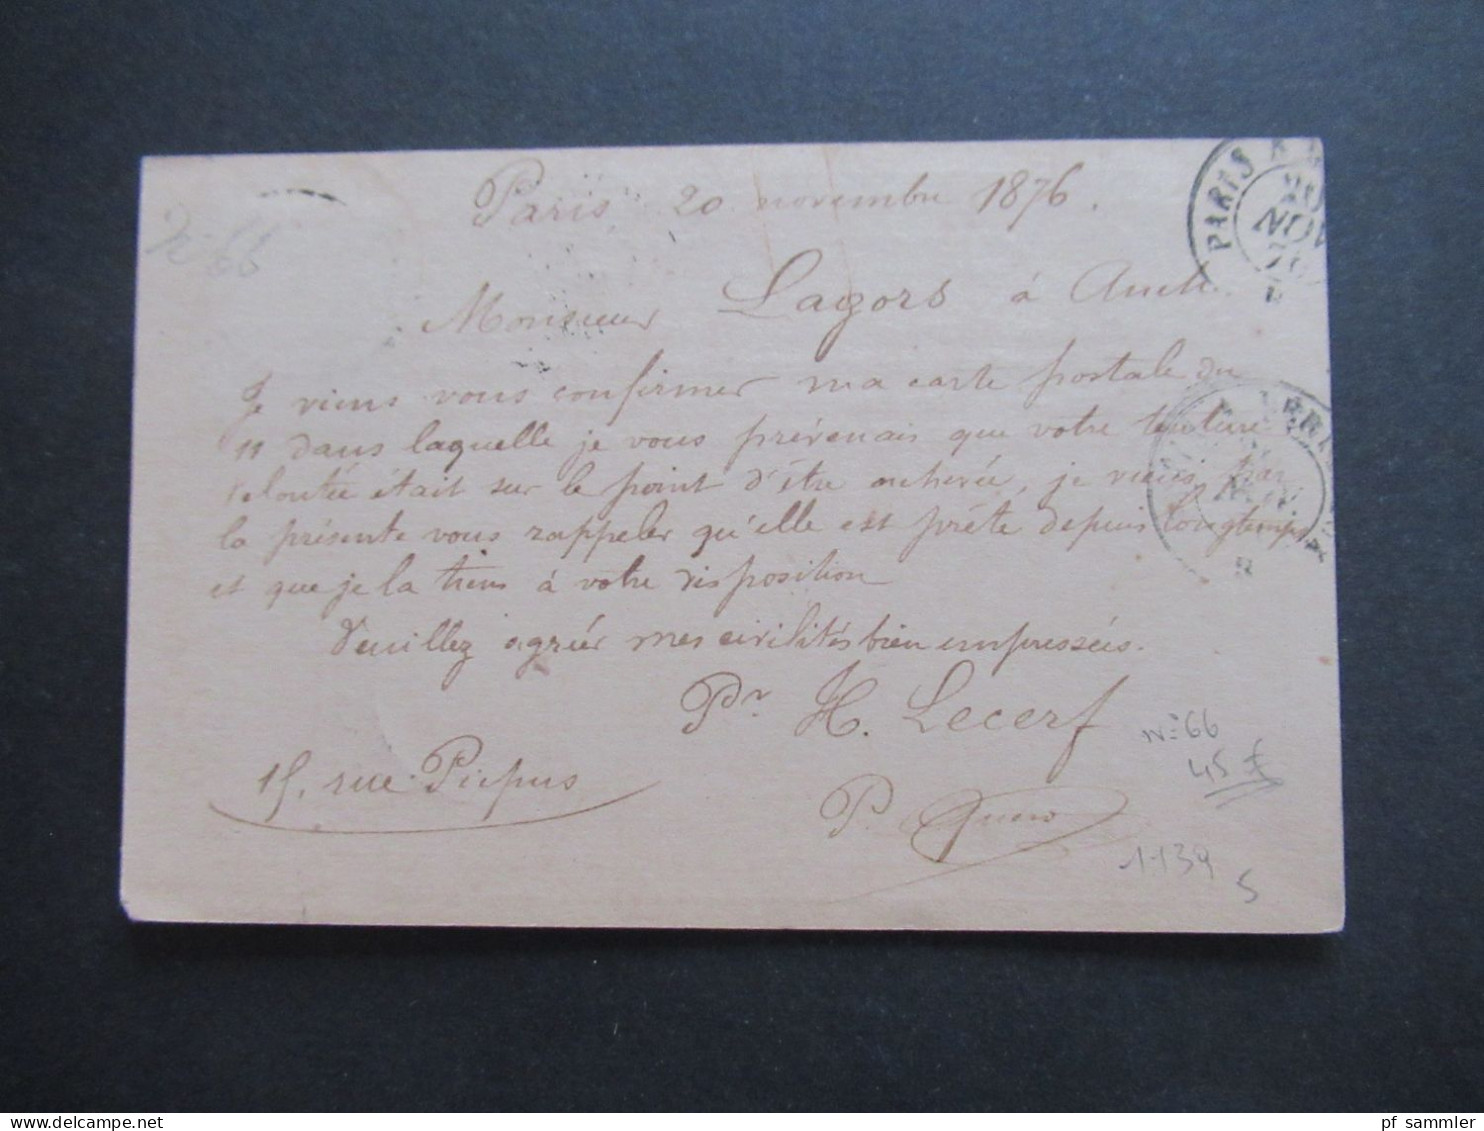 Paris 20 novembre 1876.
Monsieur Lagors à Auch
Je viens vous confirmer ma carte postale du
11 dans laquelle je vous prévenais que votre tenture
veloutée était sur le point d'être achevée, je viens, par
la présente vous rappeler qu'elle est prête depuis longtemps
et que je la tiens à votre disposition
Veuillez agréer mes civilités bien empressées.
Pr H. Lecerf
15, rue Picpus
P.
n° 66
n° 66
45 £
1-139
5
PARIS A
20
NOV
76
delcampe.net
pf_sammler